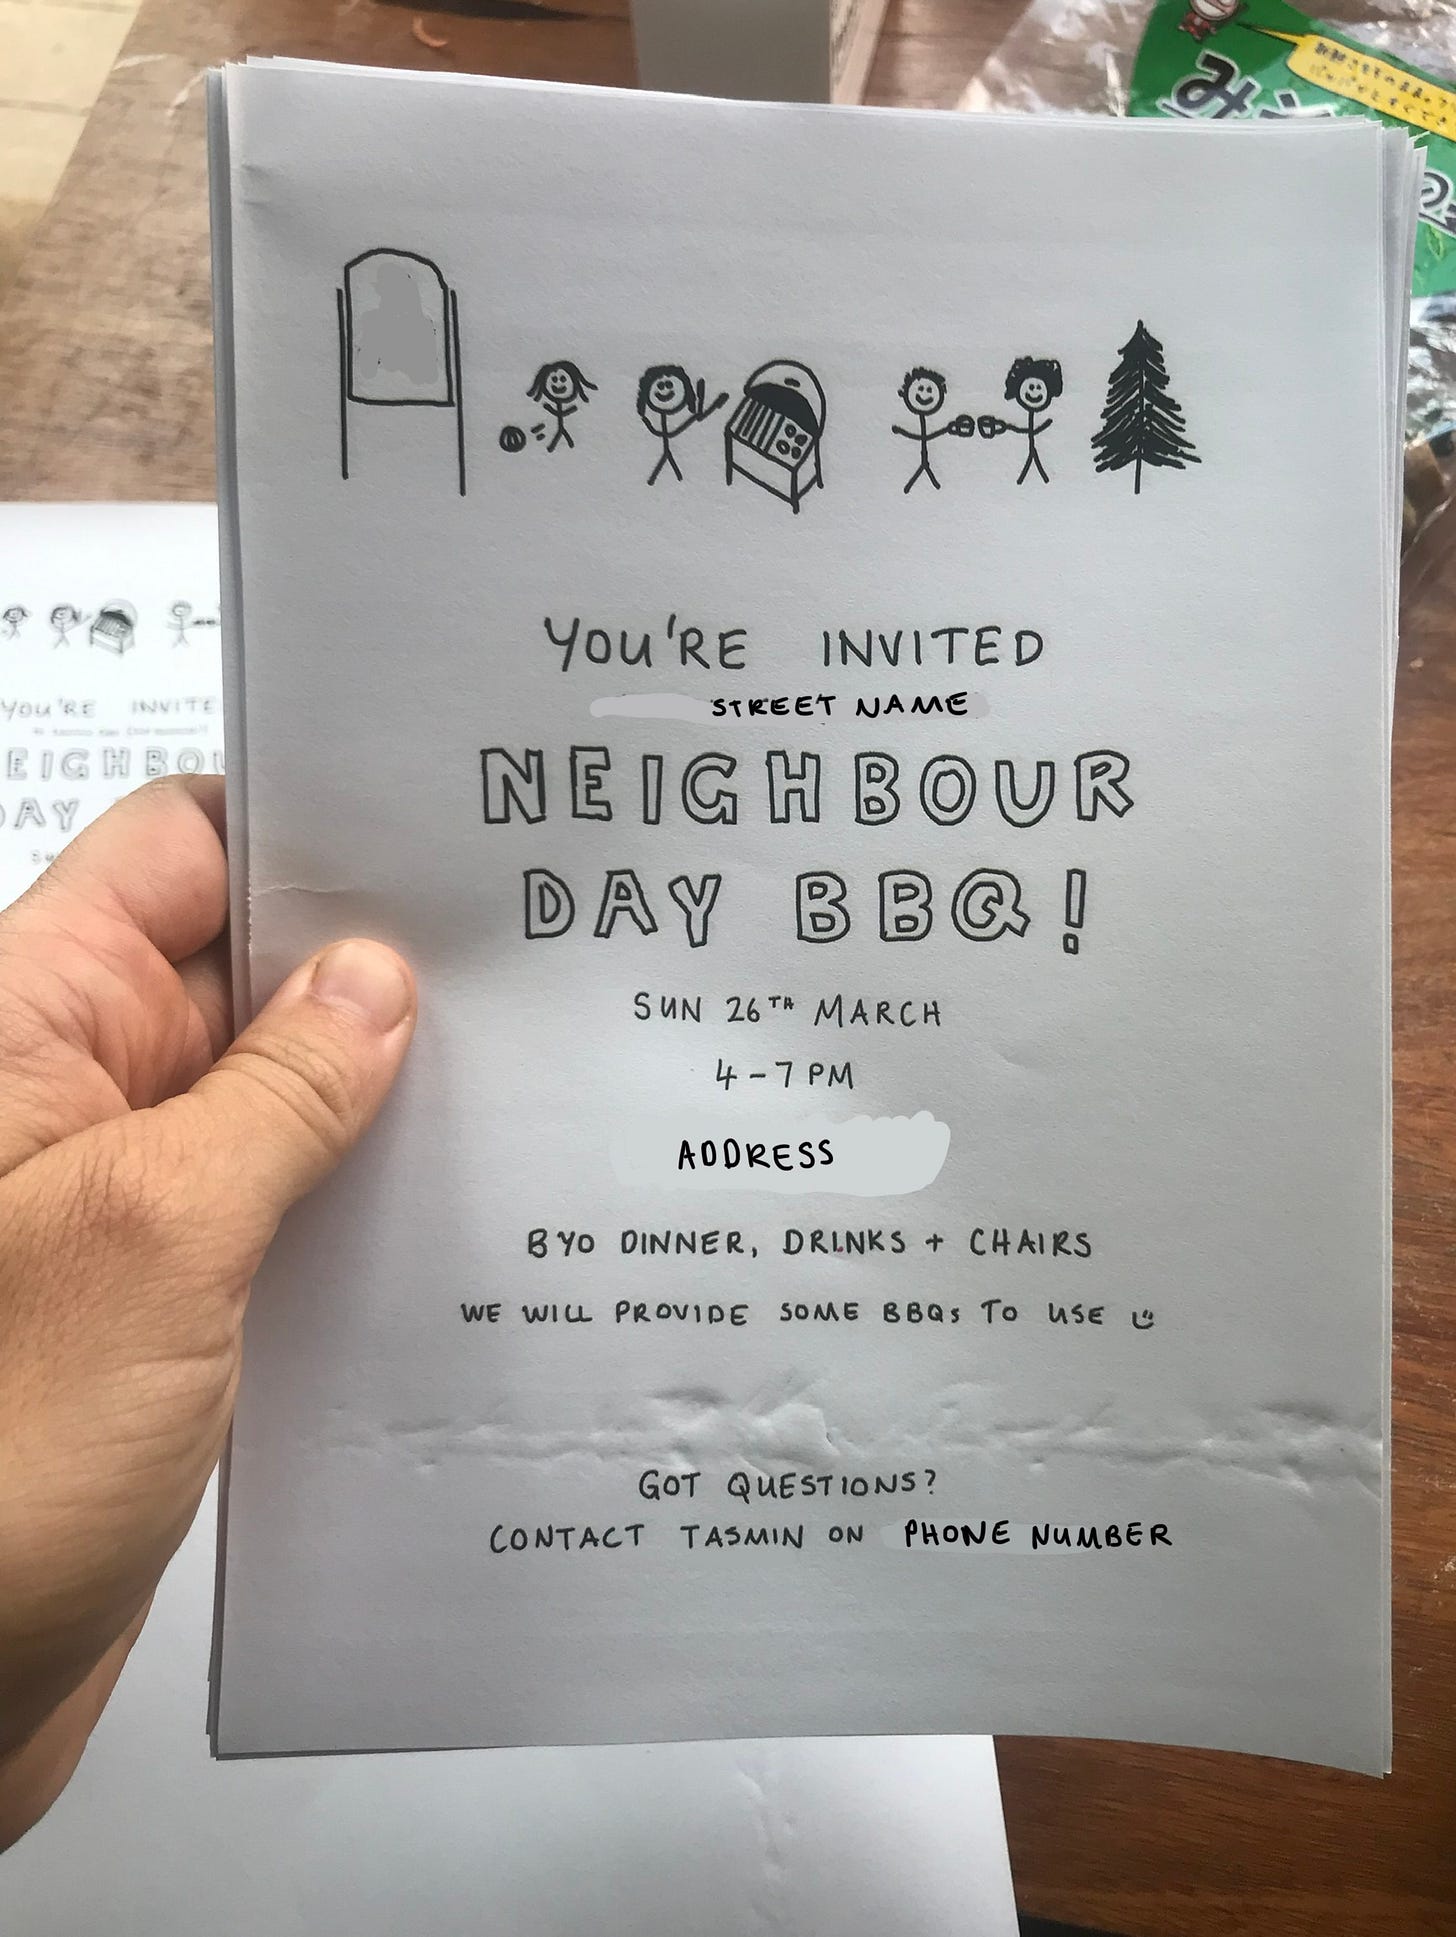 YOU'RE INVITED
STREET NAME
NEIGHBOUR
DAY BBQ!
SUN 26TH MARCH
4-7PM
ADDRESS
BYO DINNER, DRINKS + CHAIRS
WE WILL PROVIDE SOME BBQs TO USE
GOT QUESTIONS?
CONTACT TASMIN ON PHONE NUMBER
YOU'RE INVITE
EIGHBOU
DAY
み